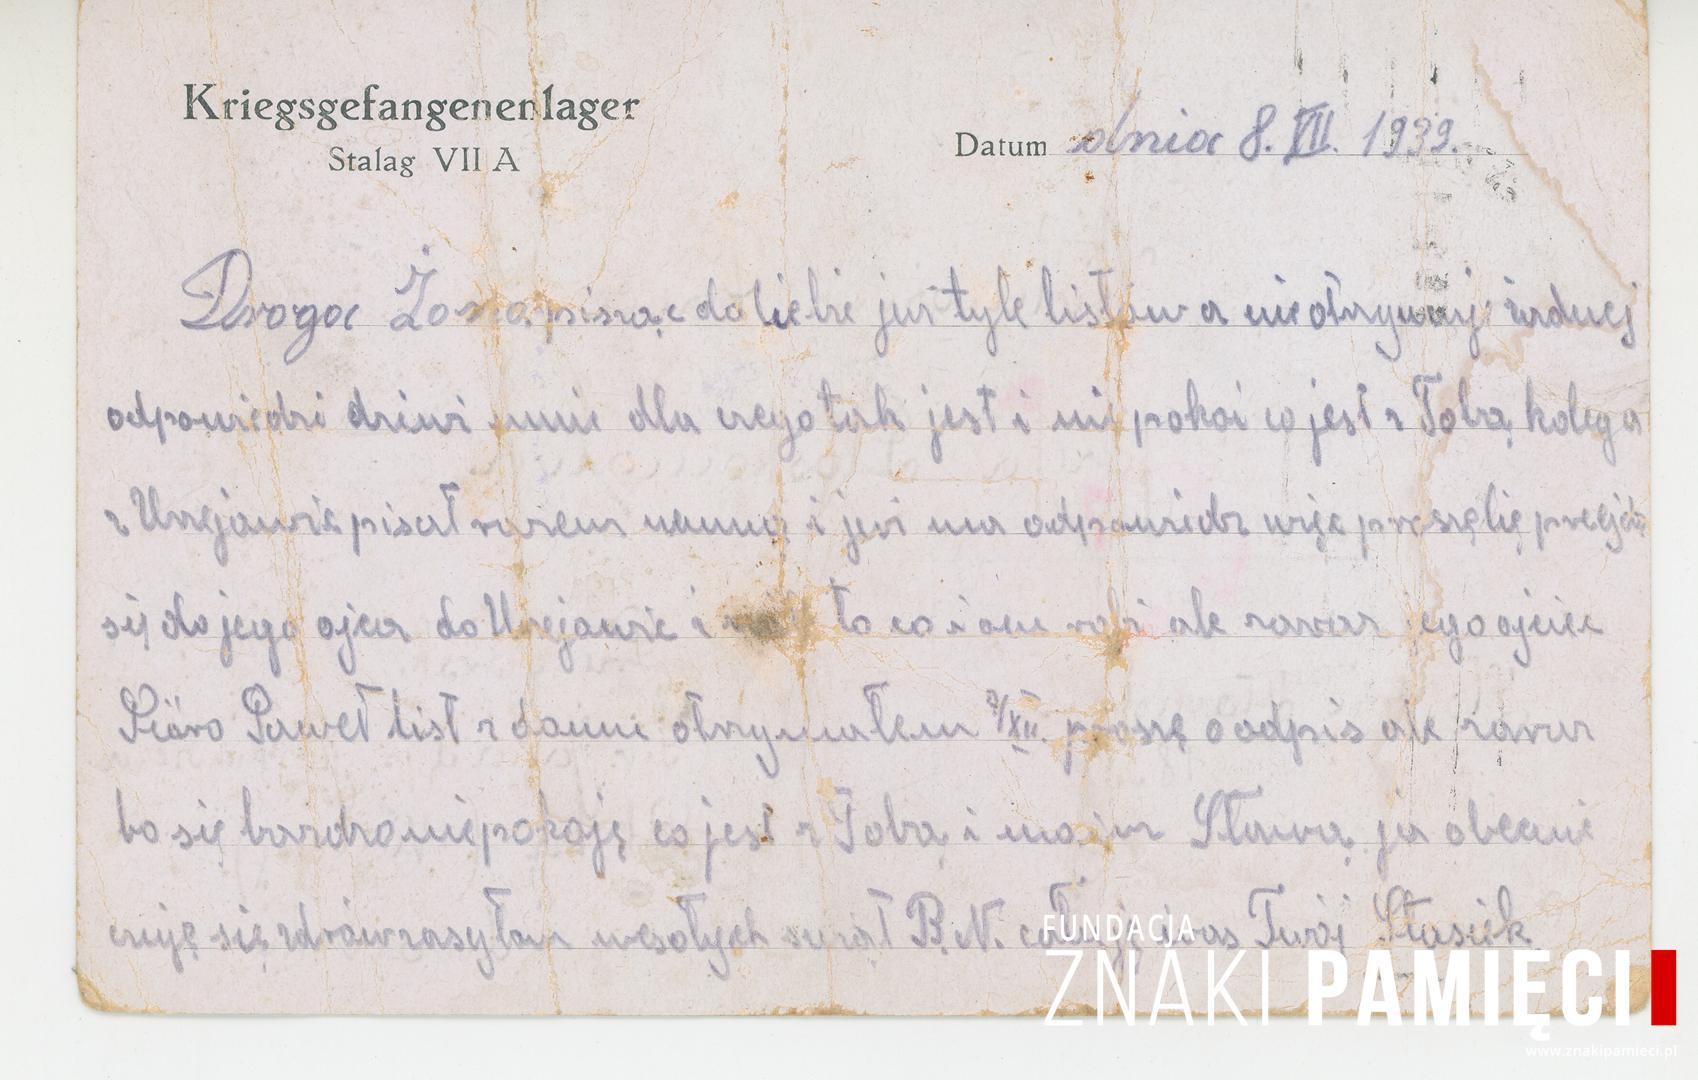 Kriegsgefangenenlager
Stalag VII A
Datum dnia 8. XII. 1939.
Droga Żono pisząc do Ciebie już tyle listów a nie otrzymuję żadnej
odpowiedzi dziwi mnie dla czego tak jest i nie pokoi co jest z Tobą kolega
z Urzejowic pisał razem zemną i już ma odpowiedz więc proszę Cię przejdz
się do jego ojca do Urzejowic i to co i one robi ale zaraz jego ojciec
Paweł list z domu otrzymałem 7/XII. proszę o odpis ale zaraz
bo się bardzo niepokoję co jest z Tobą i moją Sławą, ja obecnie
czuję się zdrów zasyłam wesołych swiąt B.N. całuję was Twój Stasiek
FUNDACJA
ZNAKI PAMIĘCI
www.znakipamieci.pl